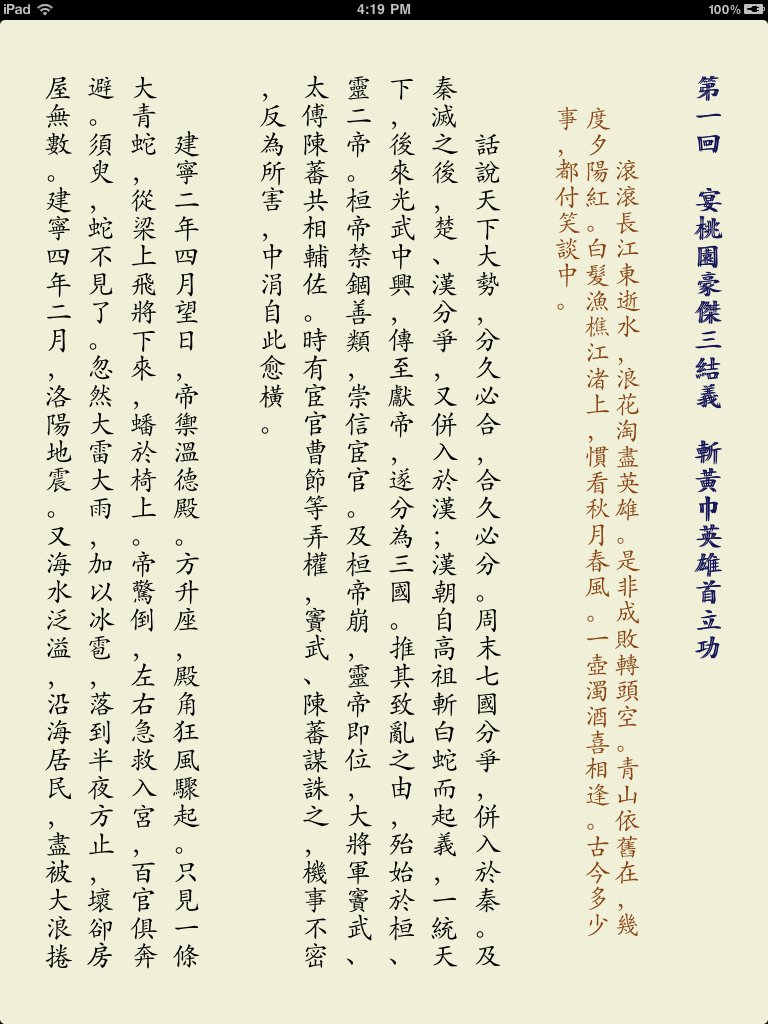 iPad 4:19 PM 100%
第一回　宴桃園豪傑三結義　斬黃巾英雄首立功
滾滾長江東逝水，浪花淘盡英雄。是非成敗轉頭空。青山依舊在，幾
度夕陽紅。白髮漁樵江渚上，慣看秋月春風。一壺濁酒喜相逢。古今多少
事，都付笑談中。
話說天下大勢，分久必合，合久必分。周末七國分爭，併入於秦。及
秦滅之後，楚、漢分爭，又併入於漢；漢朝自高祖斬白蛇而起義，一統天
下，後來光武中興，傳至獻帝，遂分為三國。推其致亂之由，殆始於桓、
靈二帝。桓帝禁錮善類，崇信宦官。及桓帝崩，靈帝即位，大將軍竇武、
太傅陳蕃共相輔佐。時有宦官曹節等弄權，竇武、陳蕃謀誅之，機事不密
，反為所害，中涓自此愈橫。
建寧二年四月望日，帝禦溫德殿。方升座，殿角狂風驟起。只見一條
大青蛇，從梁上飛將下來，蟠於椅上。帝驚倒，左右急救入宮，百官俱奔
避。須臾，蛇不見了。忽然大雷大雨，加以冰雹，落到半夜方止，壞卻房
屋無數。建寧四年二月，洛陽地震。又海水泛溢，沿海居民，盡被大浪捲